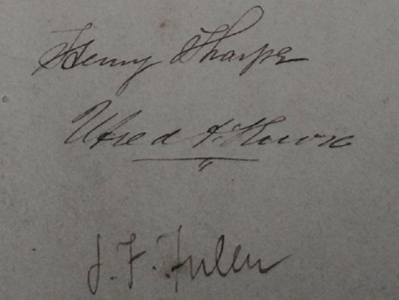 Henry Tharpe
Alfred A.
J. F. Fuller